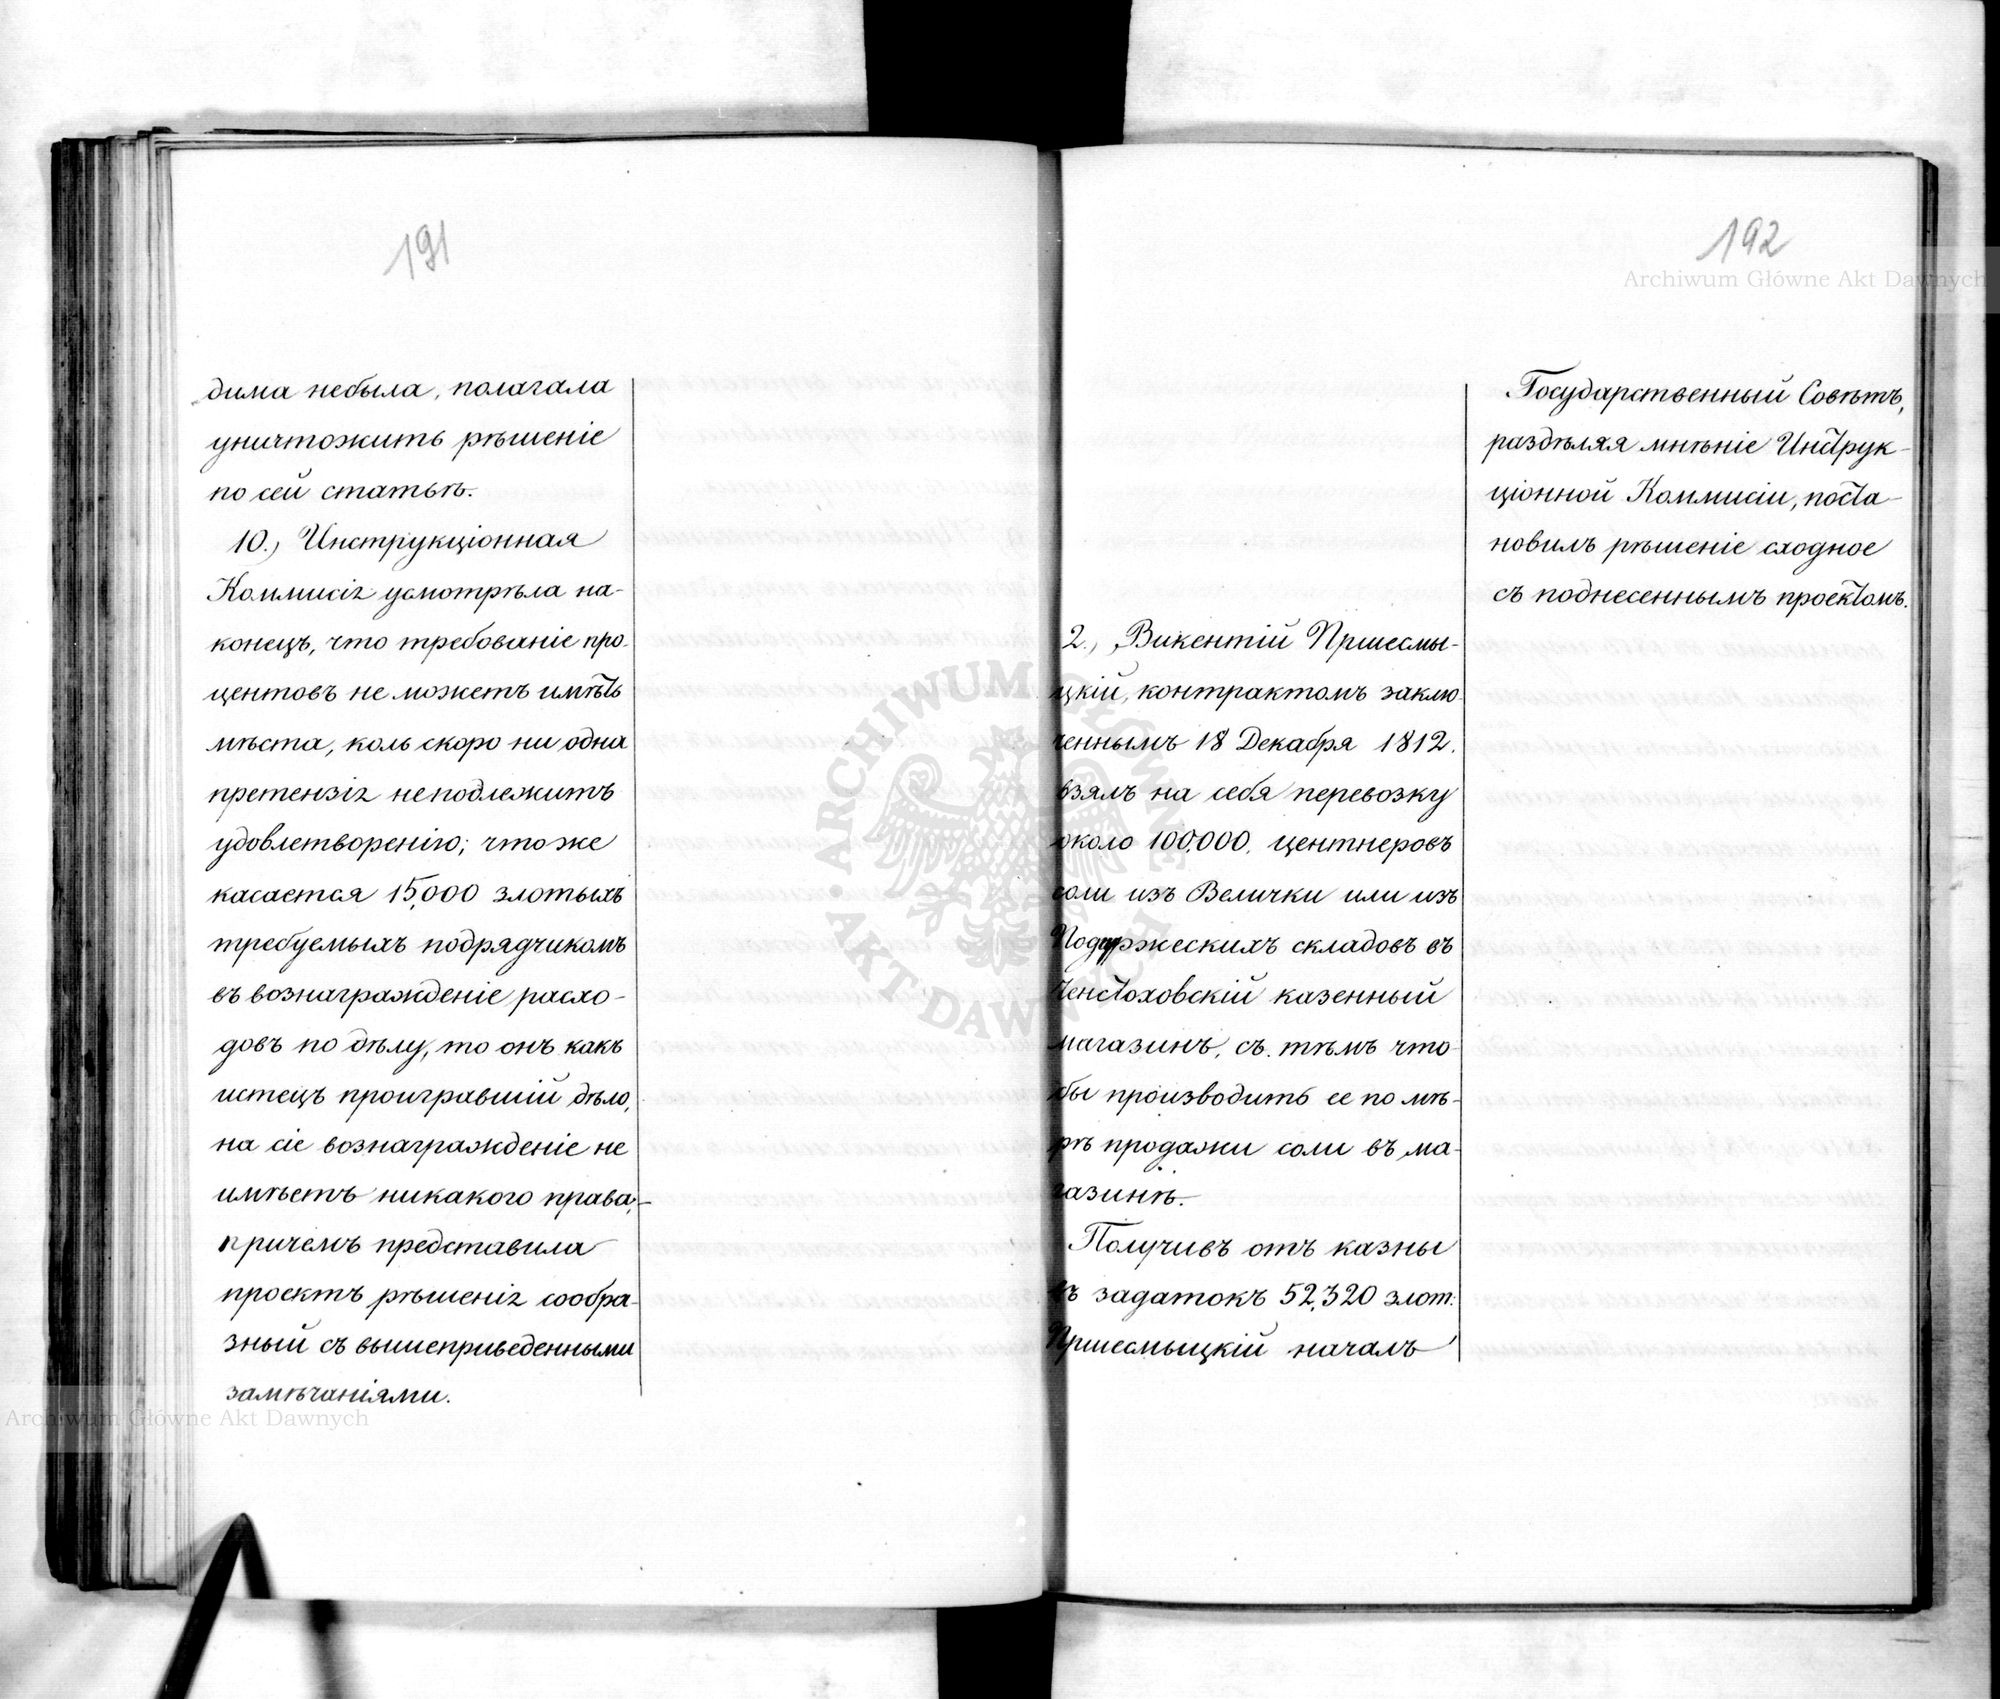 191
дима небыла, полагала
уничтожить рѣшеніе
по сей статьѣ.
10., Инструкціонная
Коммисія усмотрѣла на-
конецъ, что требованіе про-
центовъ не можетъ имѣть
мѣста, коль скоро ни одна
претензія неподлежитъ
удовлетворенію; что же
касается 15,000 злотыхъ
требуемыхъ подрядчикомъ
въ вознагражденіе расхо-
довъ по дѣлу, то онъ какъ
истецъ проигравшій дѣло,
на сіе вознагражденіе не
имѣетъ никакого права,-
причемъ представила
проектъ рѣшенія сообра-
зный съ вышеприведенными
замѣчаніями.
192
2., Викентій Пршесмы-
цкій, контрактомъ заклю-
ченнымъ 18 Декабря 1812.
взялъ на себя перевозку
около 100,000. центнеровъ
соли изъ Велички или изъ
Подгуржескихъ складовъ въ
Ченстоховскій казенный
магазинъ, съ тѣмъ что-
бы производить ее по мѣ-
рѣ продажи соли въ ма-
газинѣ.
Получивъ отъ казны
въ задатокъ 52,320 злот.
Пршесмыцкій началъ
Государственный Совѣтъ,
раздѣляя мнѣніе Инструк-
ціонной Коммисіи, поста-
новилъ рѣшеніе сходное
съ поднесеннымъ проектомъ.
Archiwum Główne Akt Dawnych
Archiwum Główne Akt Dawnych
ARCHIWUM GŁÓWNE AKT DAWNYCH